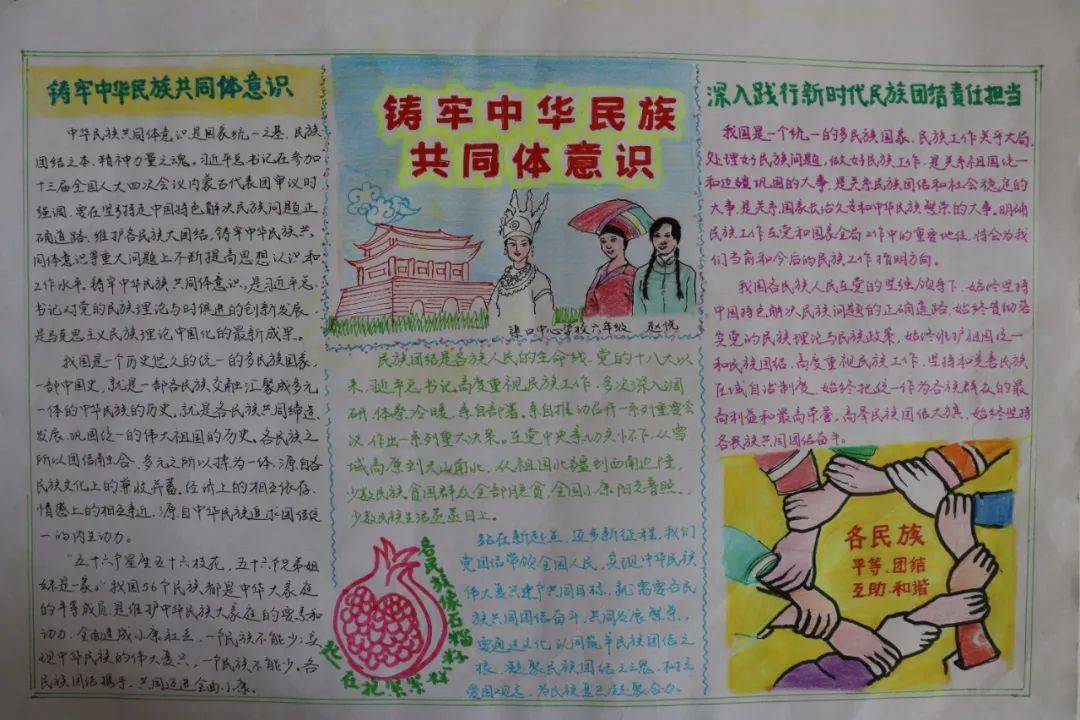 铸牢中华民族共同体意识
中华民族共同体意识是国家统一之基、民族
团结之本、精神力量之魂。习近平总书记在参加
十三届全国人大四次会议内蒙古代表团审议时
强调，要在坚持走中国特色解决民族问题正
确道路、维护各民族大团结、铸牢中华民族共
同体意识等重大问题上不断提高思想认识和
工作水平。铸牢中华民族共同体意识，是习近平总
书记对党的民族理论与时俱进的创新发展，
是马克思主义民族理论中国化的最新成果。
我国是一个历史悠久的统一的多民族国家，
一部中国史，就是一部各民族交融汇聚成多元
一体的中华民族的历史，就是各民族共同缔造、
发展、巩固统一的伟大祖国的历史。各民族之
所以团结融合，多元之所以聚为一体，源自各
民族文化上的兼收并蓄、经济上的相互依存、
情感上的相互亲近，源自中华民族追求团结统
一的内生动力。
"五十六个星座五十六枝花，五十六个兄弟姐
妹是一家。"我国56个民族都是中华大家庭
的平等成员，是维护中华民族大家庭的要素和
动力。全面建成小康社会，一个民族不能少；实
现中华民族的伟大复兴，一个民族不能少。各
民族团结携手，共同迈进全面小康。
铸牢中华民族
共同体意识
中心学校六年级 赵悦
民族团结是各族人民的生命线，党的十八大以
来，习近平总书记高度重视民族工作，多次深入调
研，体察冷暖，亲自部署、亲自推动召开一系列重要会
议，作出一系列重大决策。在党中央亲切关怀下，从雪
域高原到天山南北，从祖国北疆到西南边陲，
少数民族贫困群众全部脱贫，全国小康阳光普照，
少数民族生活蒸蒸日上。
各民族像石榴籽
一样紧紧抱在一起
站在新起点，迈步新征程，我们
党团结带领全国人民，实现中华民族
伟大复兴这个共同目标，就需要各民
族共同团结奋斗、共同发展繁荣，
需通过文化认同筑牢民族团结之
根，凝聚民族团结之魂，树立
爱国观念，为民族复兴凝聚合力。
深入践行新时代民族团结责任担当
我国是一个统一的多民族国家，民族工作关乎大局。
处理好民族问题、做好民族工作，是关系祖国统一
和边疆巩固的大事，是关系民族团结和社会稳定的
大事，是关系国家长治久安和中华民族繁荣的大事。明确
民族工作在党和国家全局工作中的重要地位，将会为我
们当前和今后的民族工作指明方向。
我国各民族人民在党的坚强领导下，始终坚持
中国特色解决民族问题的正确道路，始终贯彻落
实党的民族理论与民族政策，始终维护祖国统一
和民族团结，高度重视民族工作，坚持和完善民族
区域自治制度，始终把统一作为各族群众的最
高利益和最高荣誉，高举民族团结大旗，始终坚持
各民族共同团结奋斗。
各民族
平等、团结
互助、和谐